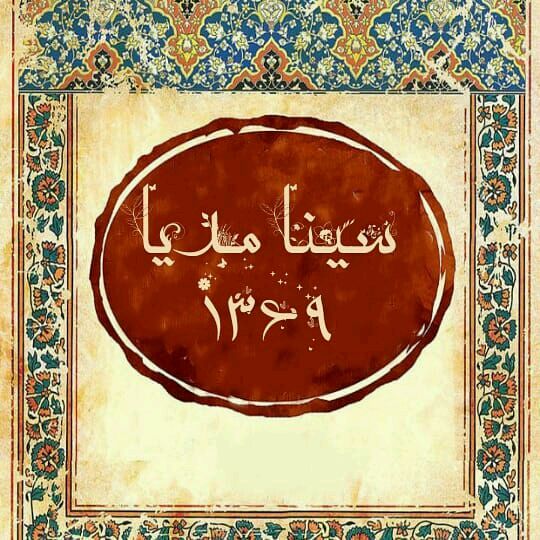 سینا مدیا
۱۳۶۹